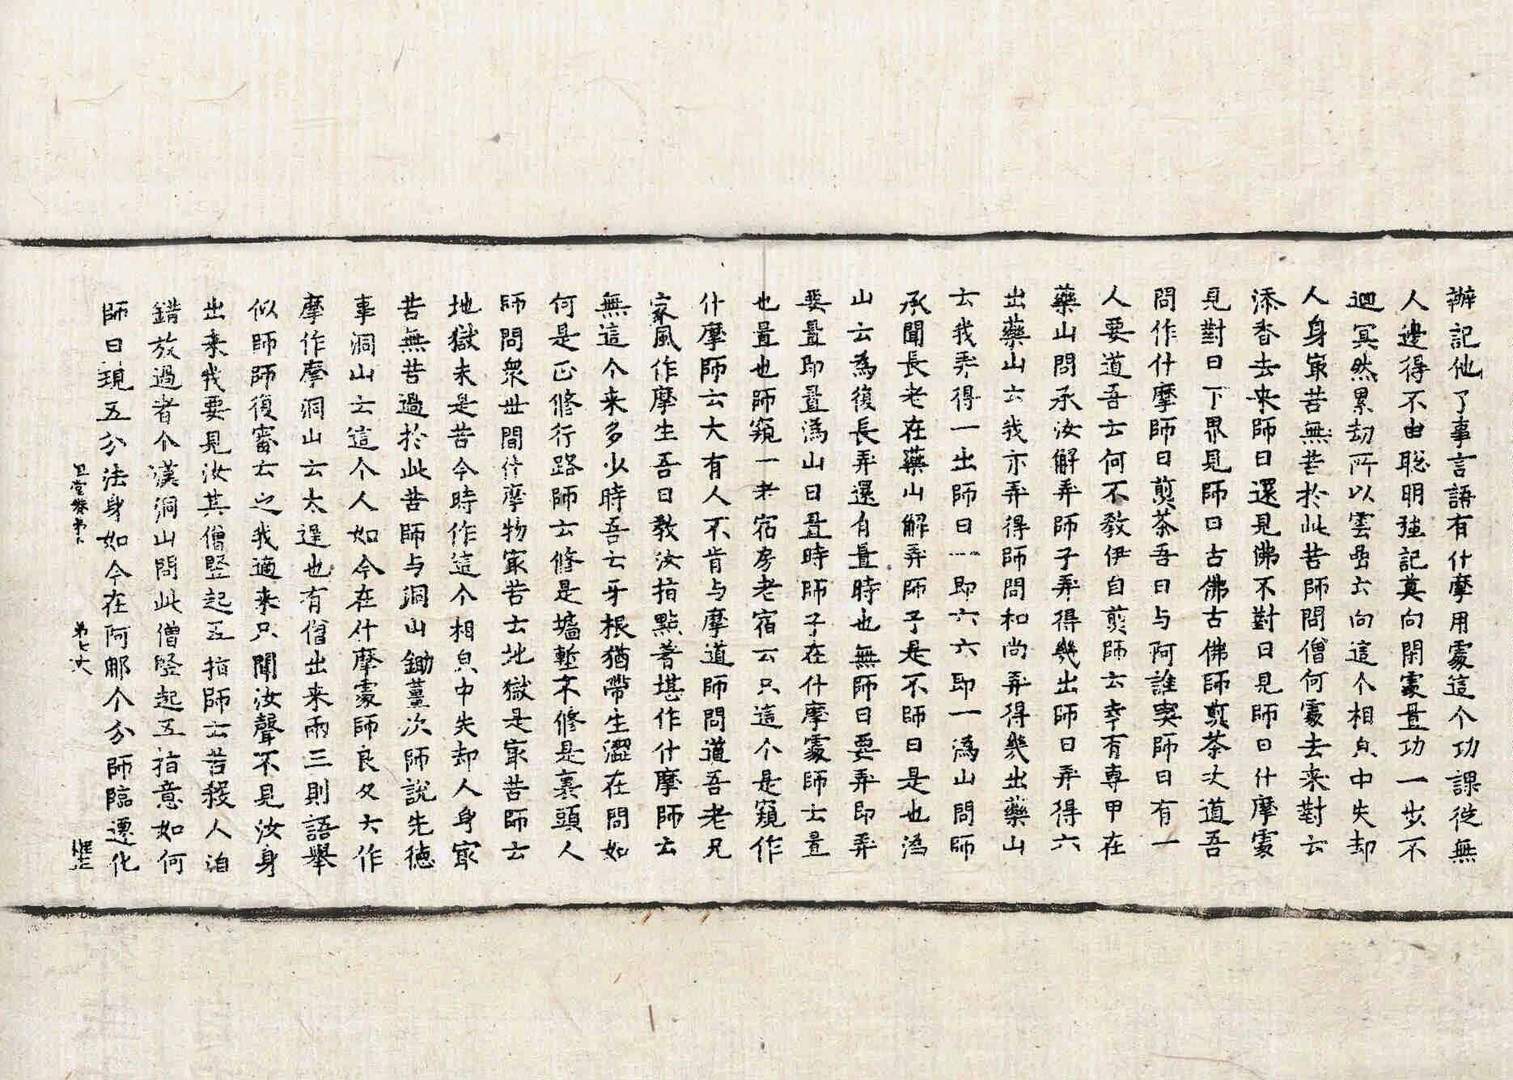 辦記他了事言語有什摩用處這个功課從無
人邊得不由聰明強記莫向閑處置功一步不
迴冥然累劫所以雲嵒云向這个相皃中失却
人身冣苦無苦於此苦師問僧何處去来對云
添香去来師曰還見佛不對曰見師曰什摩處
見對曰下界見師曰古佛古佛師煎茶次道吾
問作什摩師曰煎茶吾曰与阿誰喫師曰有一
人要道吾云何不教伊自煎師云幸有專甲在
藥山問承汝解弄師子弄得幾出師曰弄得六
出藥山云我亦弄得師問和尚弄得幾出藥山
云我弄得一出師曰一即六六即一溈山問師
承聞長老在藥山解弄師子是不師曰是也溈
山云為復長弄還有置時也無師曰要弄即弄
要置即置溈山曰置時師子在什摩處師云置
也置也師窺一老宿房老宿云只這个是窺作
什摩師云大有人不肯与摩道師問道吾老兄
家風作摩生吾曰教汝指點著堪作什摩師云
無這个来多少時吾云牙根猶帶生澀在問如
何是正修行路師云修是墻塹不修是裹頭人
師問衆世間什摩物冣苦云地獄是冣苦師云
地獄未是苦今時作這个相皃中失却人身冣
苦無苦過於此苦師与洞山鋤薑次師說先德
事洞山云這个人如今在什摩處師良久云作
摩作摩洞山云太遲也有僧出来兩三則語舉
似師師復審云之我適来只聞汝聲不見汝身
出来我要見汝其僧竪起五指師云苦殺人洎
錯放過者个漢洞山問此僧竪起五指意如何
師曰現五分法身如今在阿那个分師臨遷化
第七丈